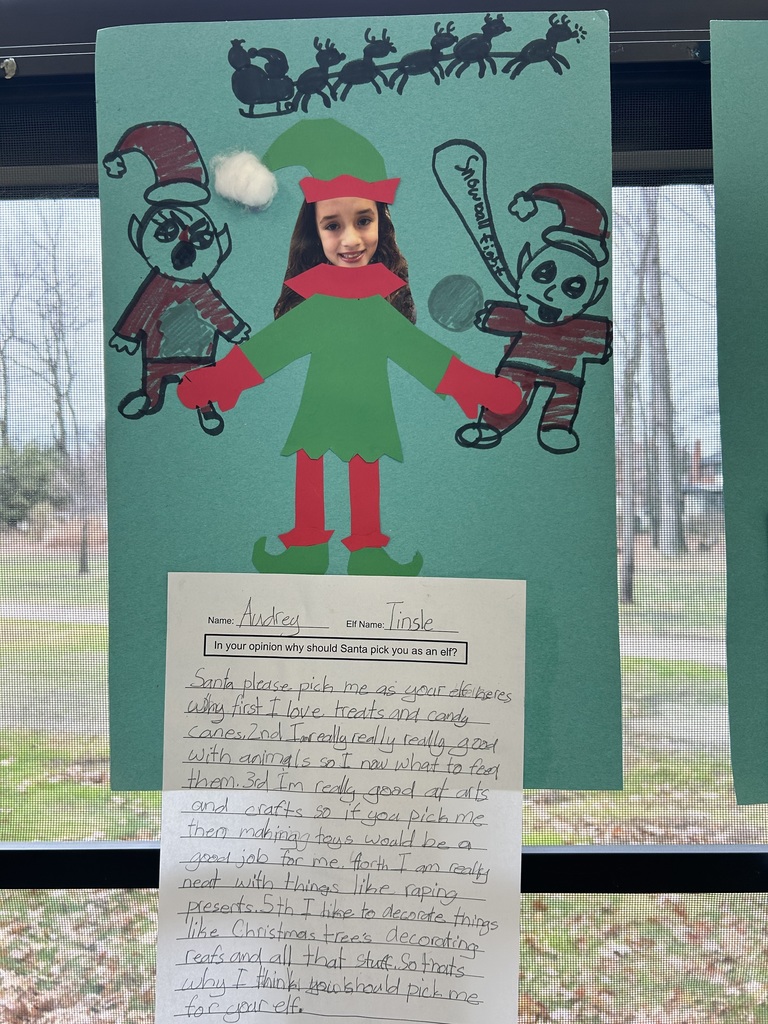 Snowball fight
Name: Audrey Elf Name: Tinsle
In your opinion why should Santa pick you as an elf?
Santa please pick me as your elf heres
why first I love treats and candy
canes. 2nd Im really really really good
with animals so I now what to feed
them. 3rd Im really good at arts
and crafts so if you pick me
then making toys would be a
good job for me. forth I am really
neat with things like raping
presents. 5th I like to decorate things
like Christmas tree's decorating
reafs and all that stuff. So thats
why I think you should pick me
for your elf.